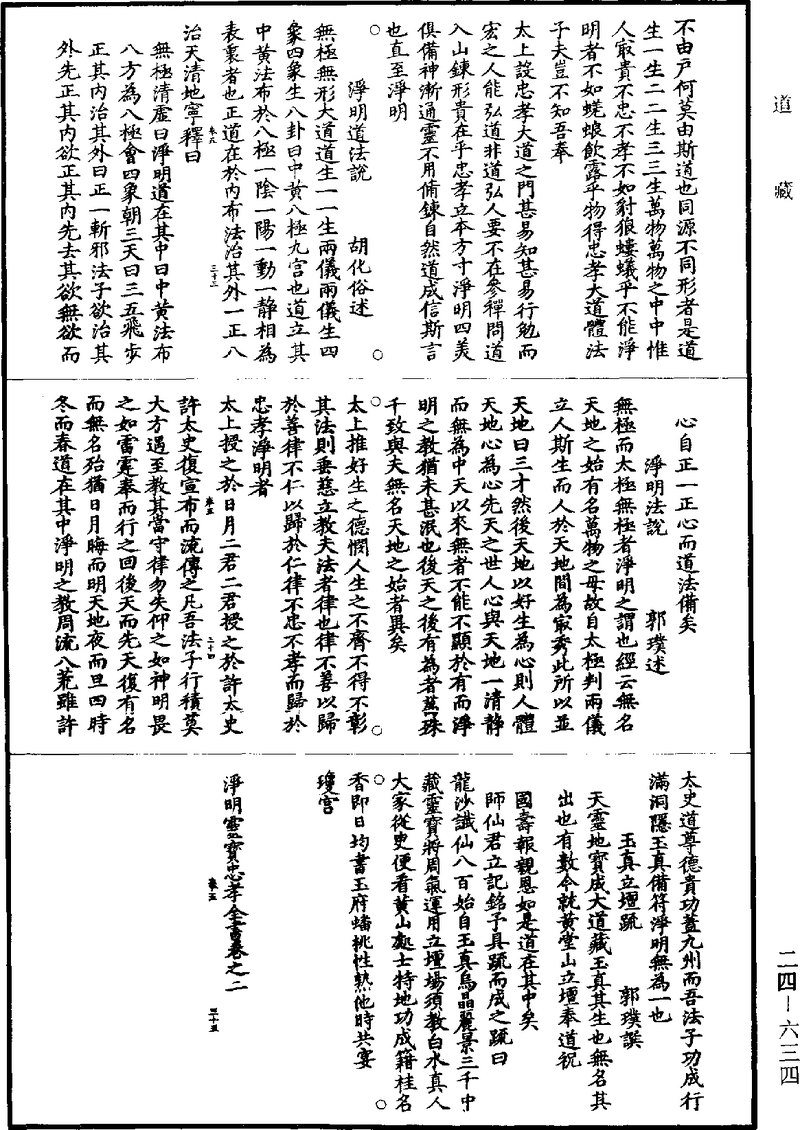 道藏
不由戶何莫由斯道也同源不同形者是道
生一生二二生三三生萬物萬物之中中惟
人㝡貴不忠不孝不如豺狼螻蟻乎不能淨
明者不如蜣蜋飲露乎物得忠孝大道體法
子夫豈不知吾奉
太上設忠孝大道之門甚易知甚易行勉而
宏之人能弘道非道弘人要不在參禪問道
入山鍊形貴在乎忠孝立本方寸淨明四美
俱備神漸通靈不用脩鍊自然道成信斯言
也直至淨明
淨明道法說 胡化俗述
無極無形大道道生一一生兩儀兩儀生四
象四象生八卦曰中黃八極九宮也道立其
中黃法布於八極一陰一陽一動一静相為
表裏者也正道在於內布法治其外一正八
治天清地寧釋曰
無極清虛曰淨明道在其中曰中黃法布
八方為八極會四象朝三天曰三五飛步
正其內治其外曰正一斬邪法子欲治其
外先正其內欲正其內先去其欲無欲而
心自正一正心而道法備矣
淨明法說 郭璞述
無極而太極無極者淨明之謂也經云無名
天地之始有名萬物之母故自太極判兩儀
立人斯生而人於天地間為㝡秀此所以並
天地曰三才然後天地以好生為心則人體
天地心為心先天之世人心與天地一清静
而無為中天以來無者不能不顯於有而淨
明之教猶未甚泯也後天之後有為者蓋殊
千致與夫無名天地之始者異矣
太上推好生之德憫人生之不齊不得不彰
其法則垂慈立教夫法者律也律不善以歸
於善律不仁以歸於仁律不忠不孝而歸於
忠孝淨明者
太上授之於日月二君二君授之於許太史
許太史復宣布而流傳之凡吾法子行積莫
大方遇至教其當守律勿失仰之如神明畏
之如雷霆奉而行之回後天而先天復有名
而無名殆猶日月晦而明天地夜而旦四時
冬而春道在其中淨明之教周流八荒雖許
太史道尊德貴功蓋九州而吾法子功成行
滿洞隱玉真備符淨明無為一也
玉真立壇疏 郭璞撰
天靈地寶成大道藏玉真其生也無名其
出也有數今就黃堂山立壇奉道祝
國壽報親恩如是道在其中矣
師仙君立記銘予具疏而成之疏曰
龍沙讖仙八百始自玉真烏晶麗景三千中
藏靈寶將周氣運用立壇場須教白水真人
大家從臾便看黃山處士特地功成籍桂名
香即日均書玉府蟠桃性熟他時共宴
瓊宮
淨明靈寶忠孝全書卷之二
二四－六三四